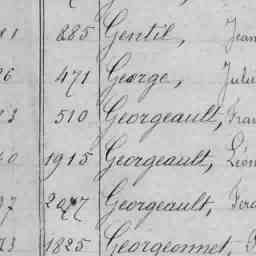 81 885 Gentil, Jean
26 471 George, Juli
510 Georgeault, Fran
1915 Georgeault, Léon
Georgeault, Ferd
1825 Georgeonnet,